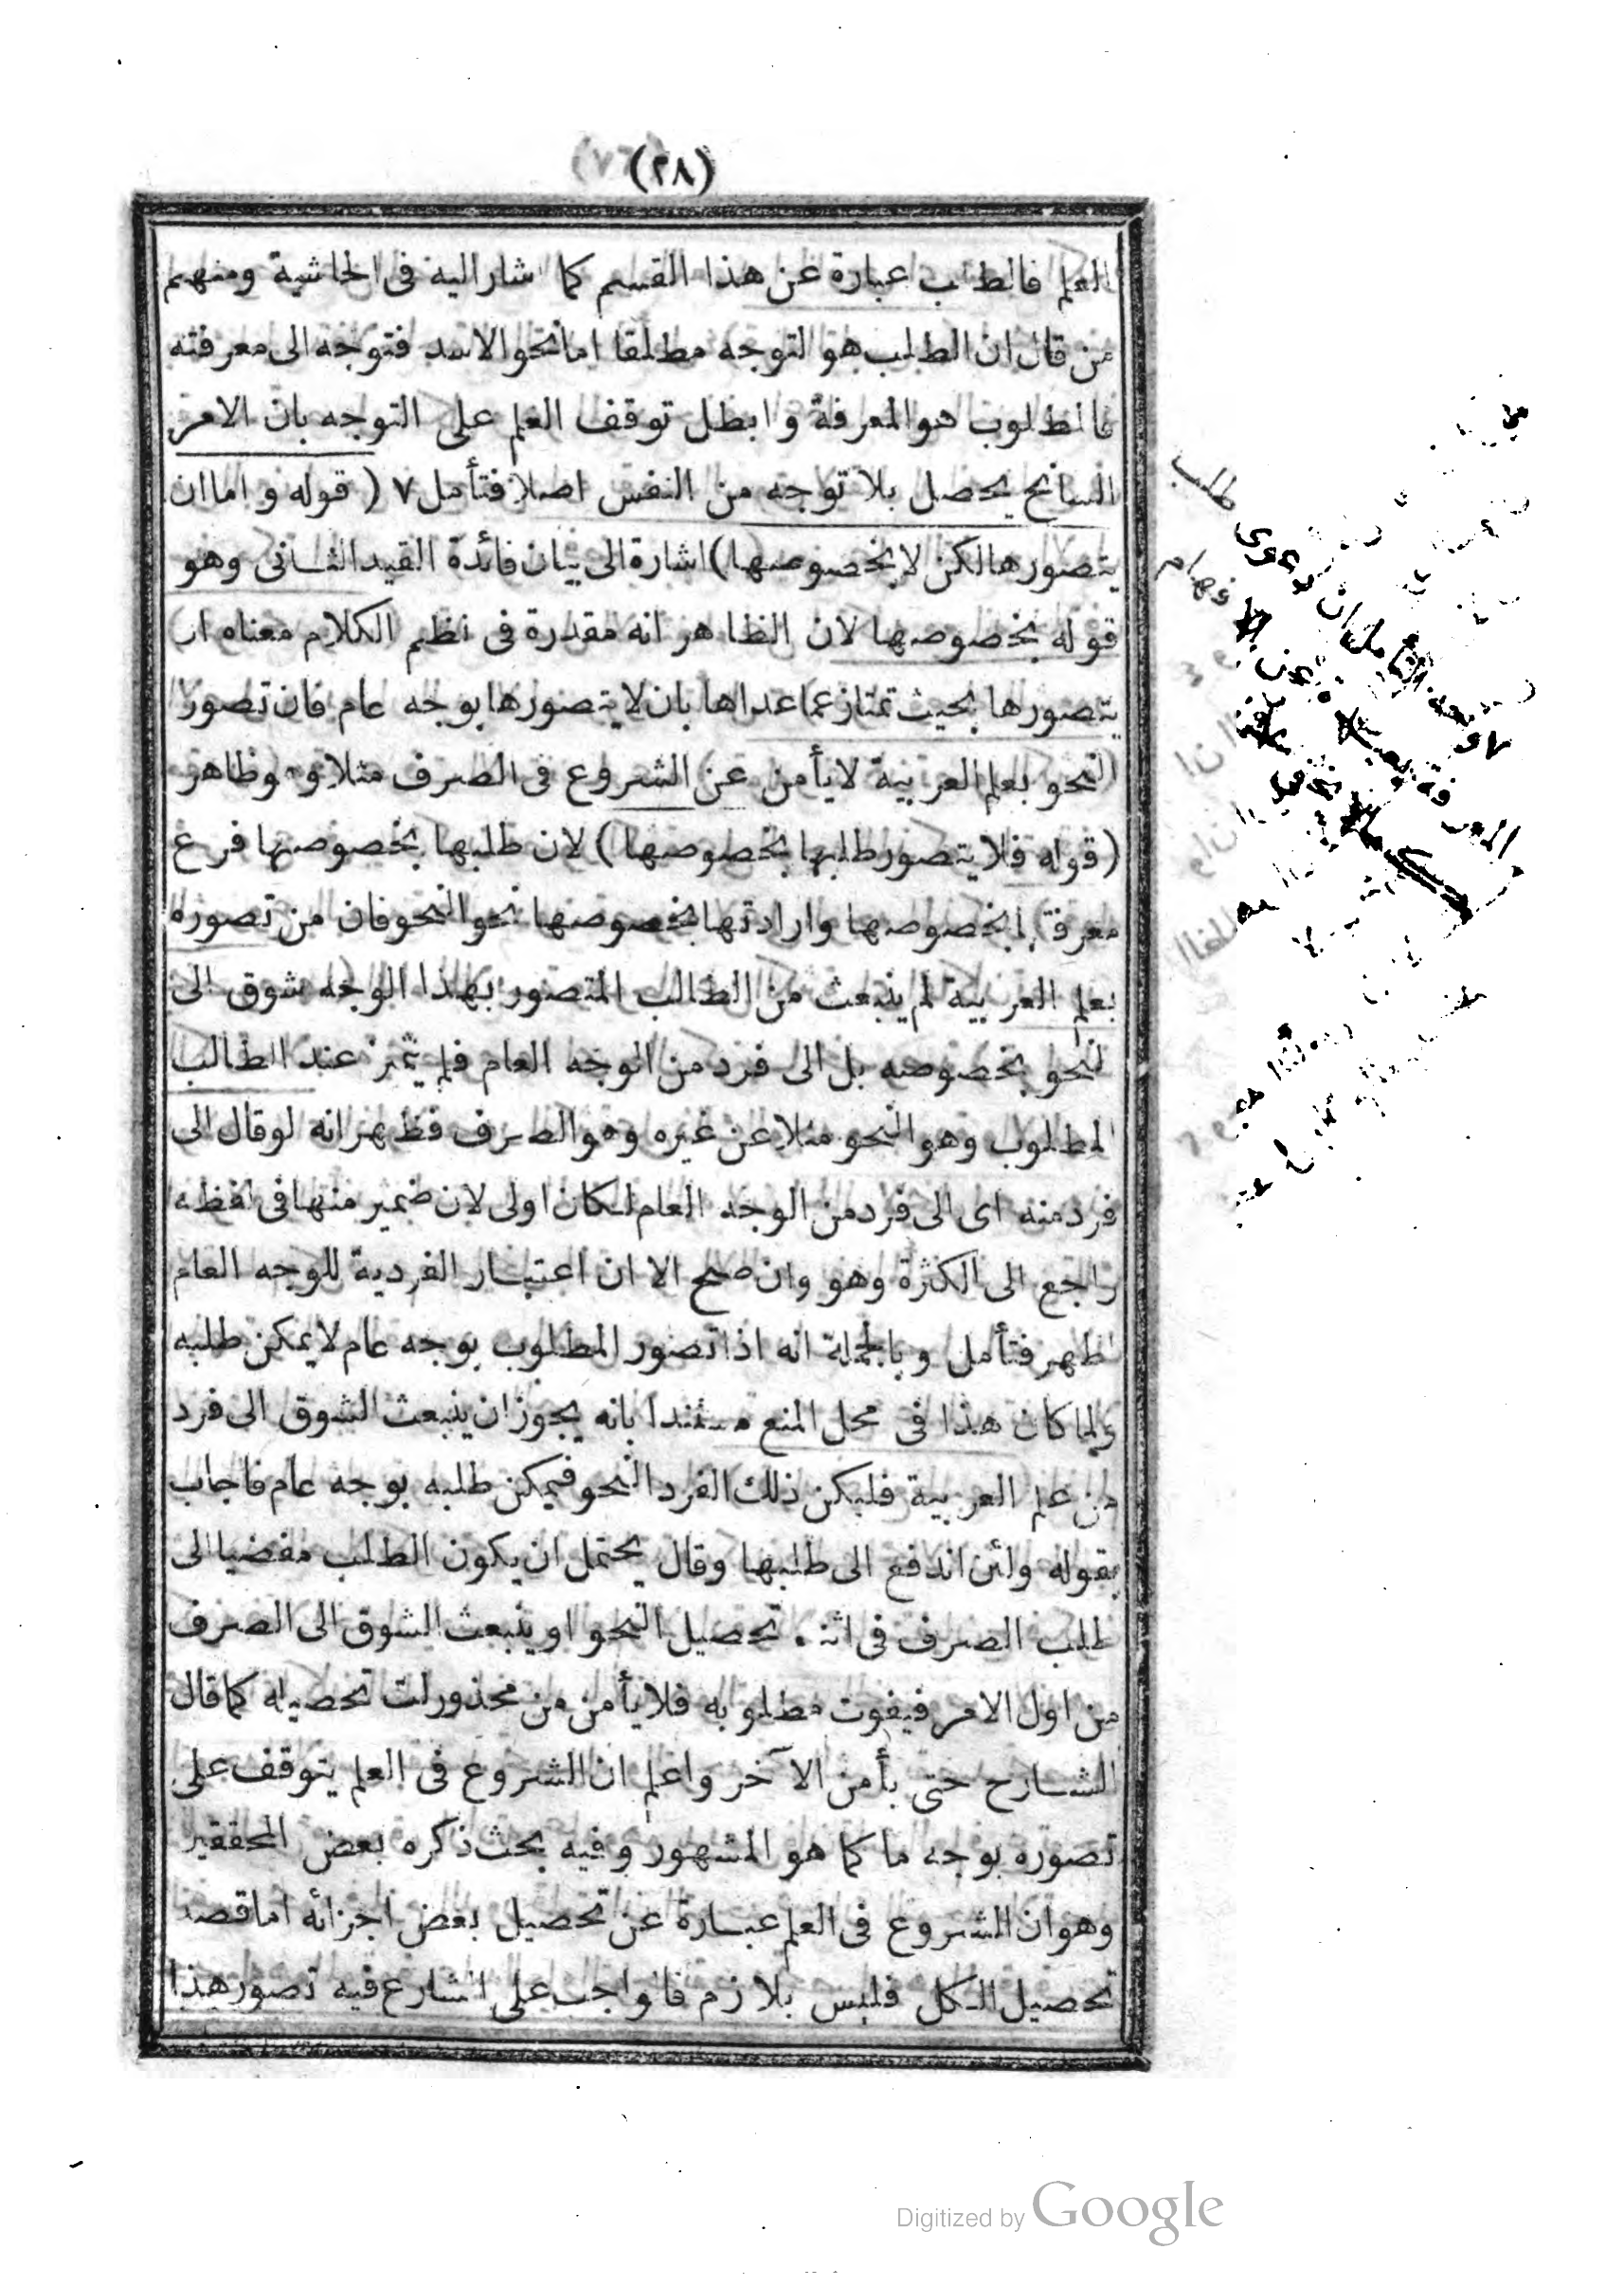 (٢٨)
العلم فالطلب عبارة عن هذا القسم كما اشار اليه فى الحاشية ومنهم
من قال ان الطلب هو التوجه مطلقا اما نحو الاسد فتوجه الى معرفته
فالمطلوب هو المعرفة وابطل توقف العلم على التوجه بان الامر
السانح يحصل بلا توجه من النفس اصلا فتأمل ٧ (قوله واما ان
يتصورها لكن لا بخصوصها) اشارة الى بيان فائدة القيد الثانى وهو
قوله بخصوصها لان الظاهر انه مقدرة فى نظم الكلام معناه ان
يتصورها بحيث تمتاز عما عداها بان لا يتصورها بوجه عام فان تصور
النحو بعلم العربية لا يأمن عن الشروع فى الصرف مثلا وهو ظاهر
(قوله فلا يتصور طلبها بخصوصها) لان طلبها بخصوصها فرع
معرفتها بخصوصها وارادتها بخصوصها نحو النحو فان من تصوره
بعلم العربية لم ينبعث من الطالب المتصور بهذا الوجه شوق الى
النحو بخصوصه بل الى فرد من الوجه العام فلم يتميز عند الطالب
المطلوب وهو النحو مثلا عن غيره وهو الصرف فظهر انه لو قال الى
فرد منه اى الى فرد من الوجه العام لكان اولى لان ضمير منها فى لفظه
راجع الى الكثرة وهو وان صح الا ان اعتبار الفردية للوجه العام
اظهر فتأمل وبالجملة انه اذا تصور المطلوب بوجه عام لا يمكن طلبه
ولما كان هذا فى محل المنع مستندا بانه يجوز ان ينبعث الشوق الى فرد
من علم العربية فليكن ذلك الفرد النحو فيمكن طلبه بوجه عام فاجاب
بقوله ولئن اندفع الى طلبها وقال يحتمل ان يكون الطلب مفضيا الى
طلب الصرف فى اثناء تحصيل النحو او ينبعث الشوق الى الصرف
من اول الامر فيفوت مطلوبه فلا يأمن من محذورات تحصيله كما قال
الشارح حتى يأمن الآخر واعلم ان الشروع فى العلم يتوقف على
تصوره بوجه ما كما هو المشهور وفيه بحث ذكره بعض المحققين
وهو ان الشروع فى العلم عبارة عن تحصيل بعض اجزائه اما قصد
تحصيل الكل فليس بلازم فالواجب على الشارع فيه تصور هذا
٧ وجه التأمل ان دعوى طلب
Digitized by Google